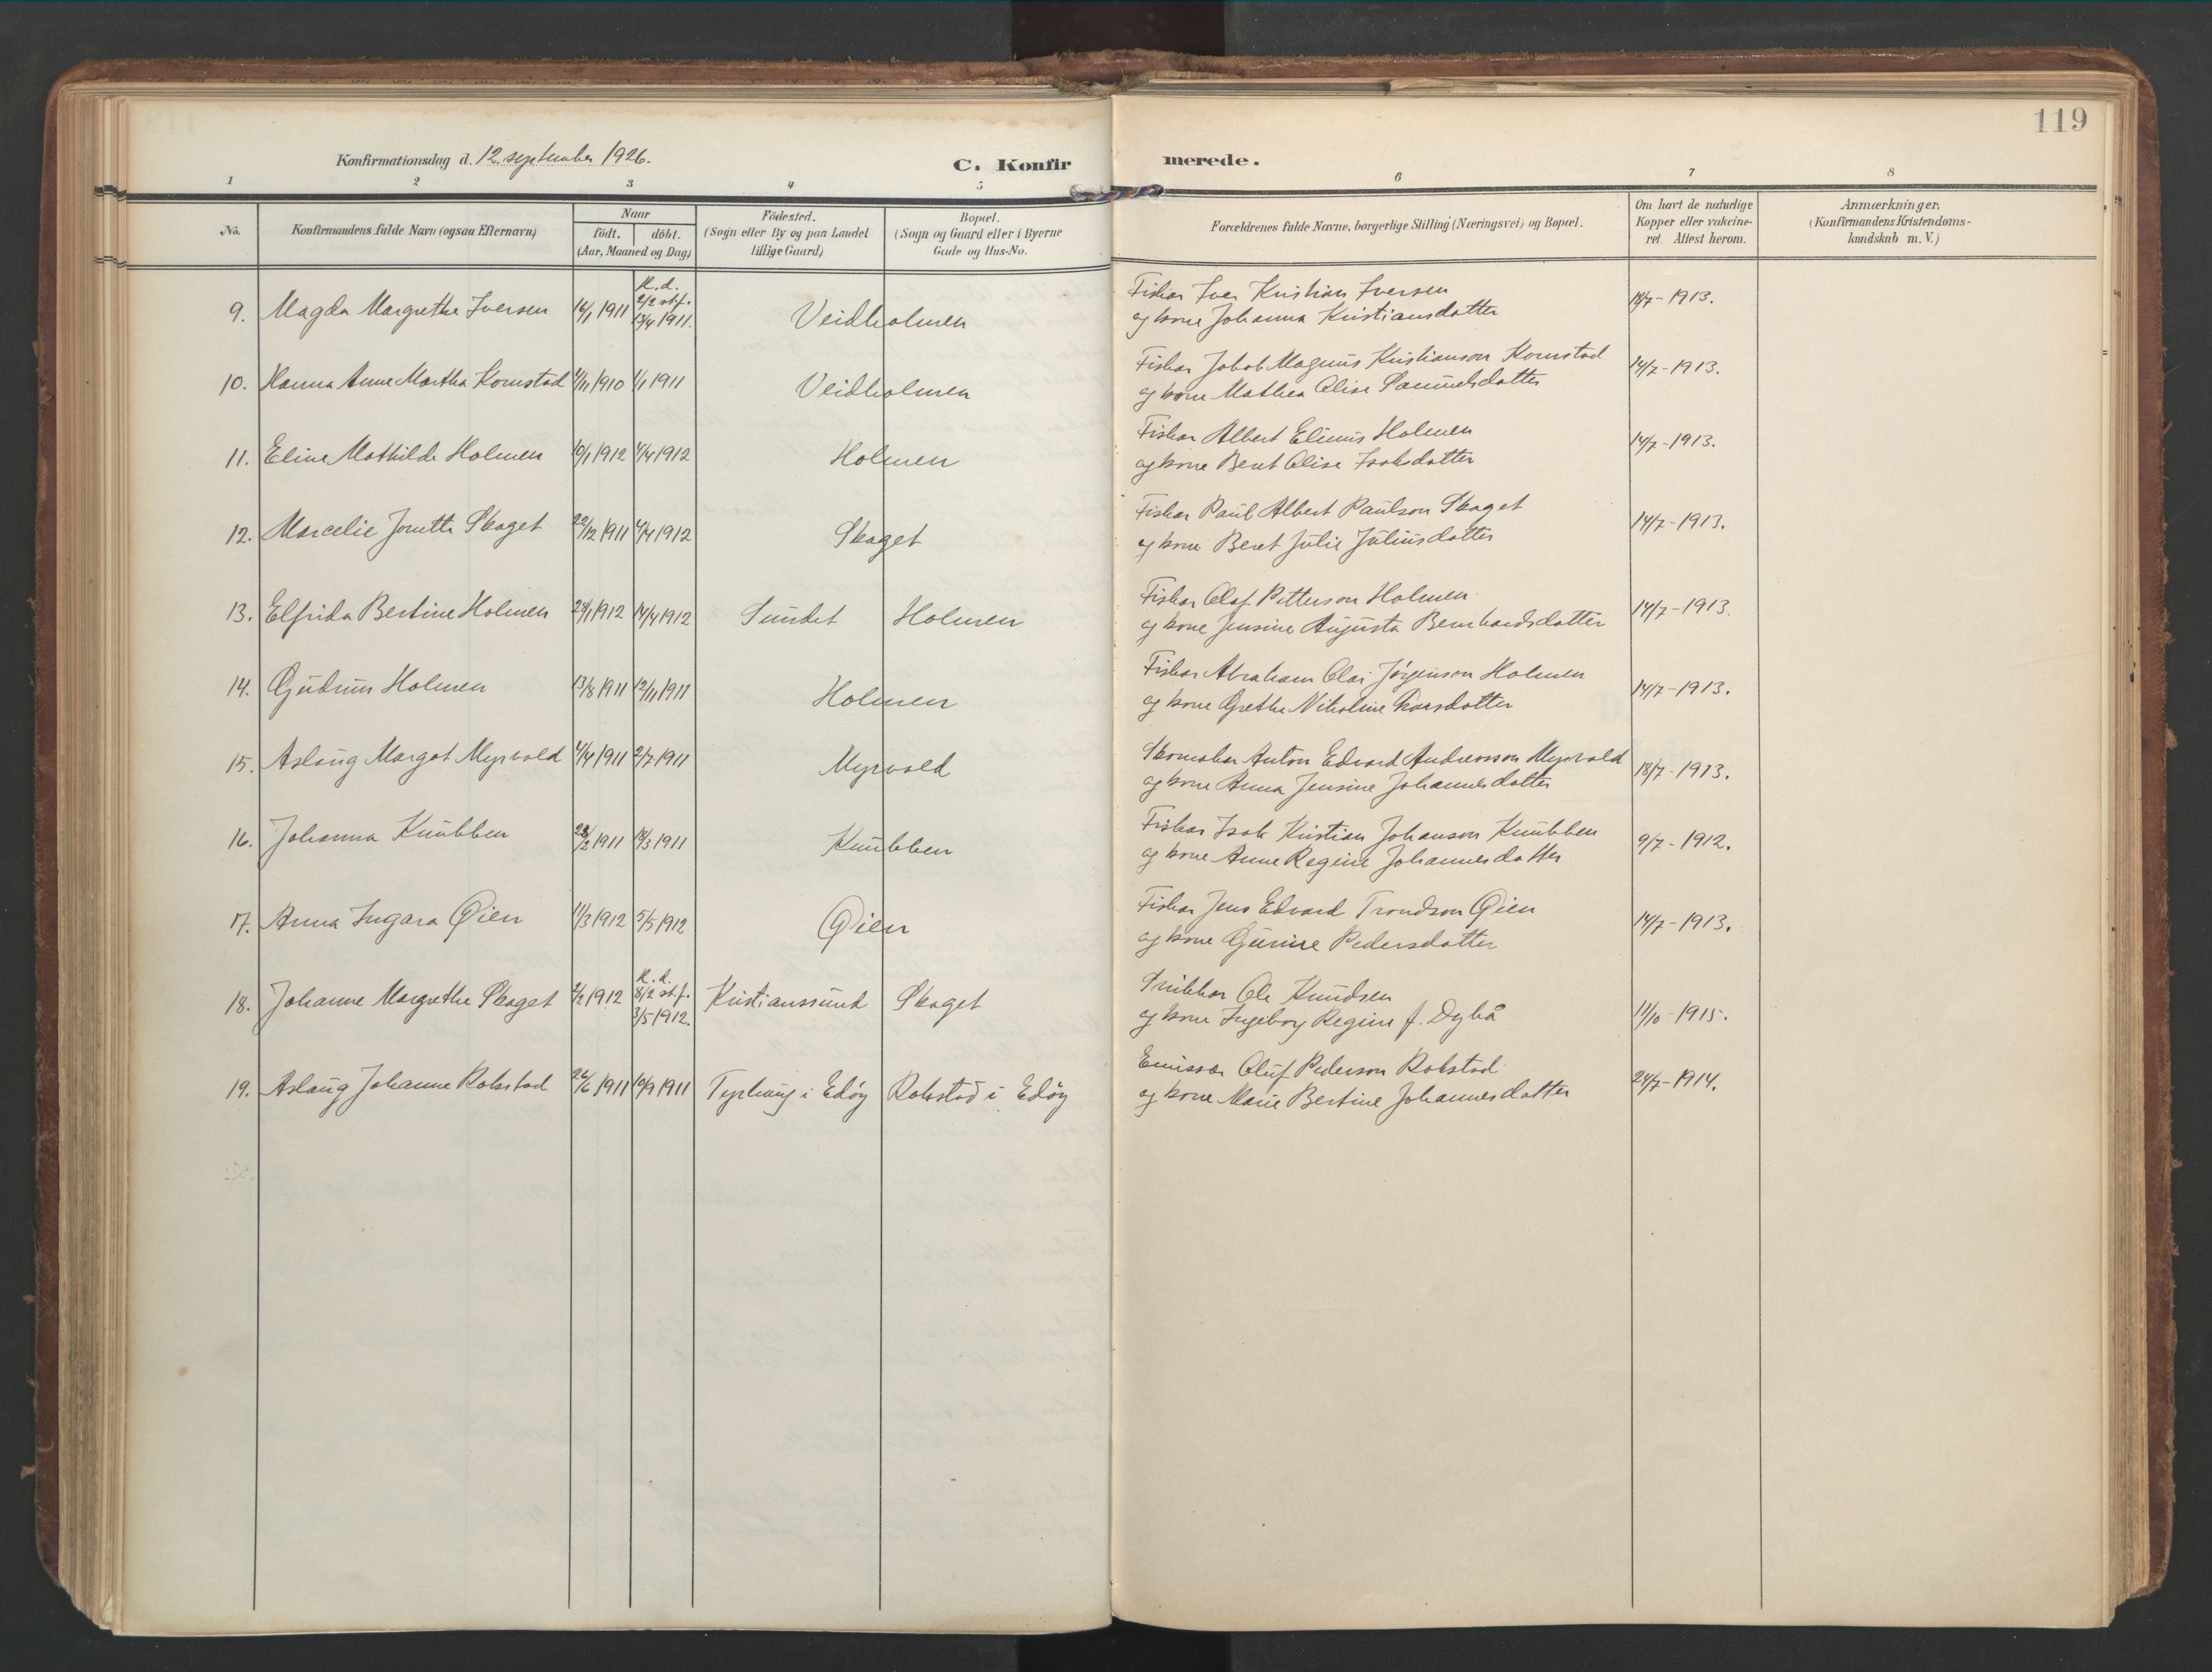 119
Konfirmationsdag d. 12. september 1926.
C. Konfirmerede.
1 2 3 4 5 6 7 8
No.
Konfirmandens fulde Navn (ogsaa Efternavn)
Naar
födt. döbt.
(Aar, Maaned og Dag)
Födested.
(Sogn eller By og paa Landet
tillige Gaard)
Bopæl.
(Sogn og Gaard eller i Byerne
Gade og Hus-No.
Forældrenes fulde Navne, borgerlige Stilling (Næringsvei) og Bopæl.
Om havt de naturlige
Kopper eller vakcine-
ret. Attest herom.
Anmærkninger.
(Konfirmandens Kristendoms-
kundskab m. V.)
9. Magda Margrethe Iversen 14/1 1911 H.d. 2/2 st.f. 13/4 1911. Veidholmen
Fiskar Iver Kristian Iversen
og kone Johanna Kristiansdatter
14/7-1913.
10. Hanna Anne Martha Kornstad 4/11 1910 1/1 1911 Veidholmen
Fiskar Jakob Magnus Kristianson Kornstad
og kone Mathea Olise Samuelsdatter
14/7-1913.
11. Eline Mathilde Holmen 10/1 1912 4/4 1912 Holmen
Fiskar Albert Elinus Holmen
og kone Beret Olise Isaksdatter
14/7-1913.
12. Marcelie Jonette Skaget 22/12 1911 4/4 1912 Skaget
Fiskar Paul Albert Paulson Skaget
og kone Beret Julie Juliusdatter
14/7-1913.
13. Elfrida Bertine Holmen 28/1 1912 14/4 1912 Sundet Holmen
Fiskar Olaf Petterson Holmen
og kone Jensine Augusta Bernhardsdatter
14/7-1913.
14. Gudrun Holmen 13/8 1911 12/11 1911 Holmen
Fiskar Abraham Olai Jørgenson Holmen
og kone Grethe Nikoline Larsdatter
14/7-1913.
15. Aslaug Margot Myrvold 4/4 1911 2/7 1911 Myrvold
Skomakar Anton Edvard Andreasson Myrvold
og kone Anna Jensine Johannesdatter
18/7-1913.
16. Johanna Knubben 23/2 1911 19/3 1911 Knubben
Fiskar Isak Kristian Johanson Knubben
og kone Anne Regine Johannesdatter
9/7-1912.
17. Anna Ingara Øien 11/3 1912 5/5 1912 Øien
Fiskar Jens Edvard Trondson Øien
og kone Gurine Pedersdatter
14/7-1913.
18. Johanne Margrethe Skaget 2/2 1912 H.d. 8/2 st.f. 3/5 1912. Kristianssund Skaget
Snikkar Ole Knudsen
og kone Ingeborg Regine f. Dyhå
11/10-1915.
19. Aslaug Johanne Rokstad 26/6 1911 10/9 1911 Tyrhaug i Edøy Rokstad i Edøy
Emissær Oluf Pederson Rokstad
og kone Marie Bertine Johannesdatter
24/7-1914.